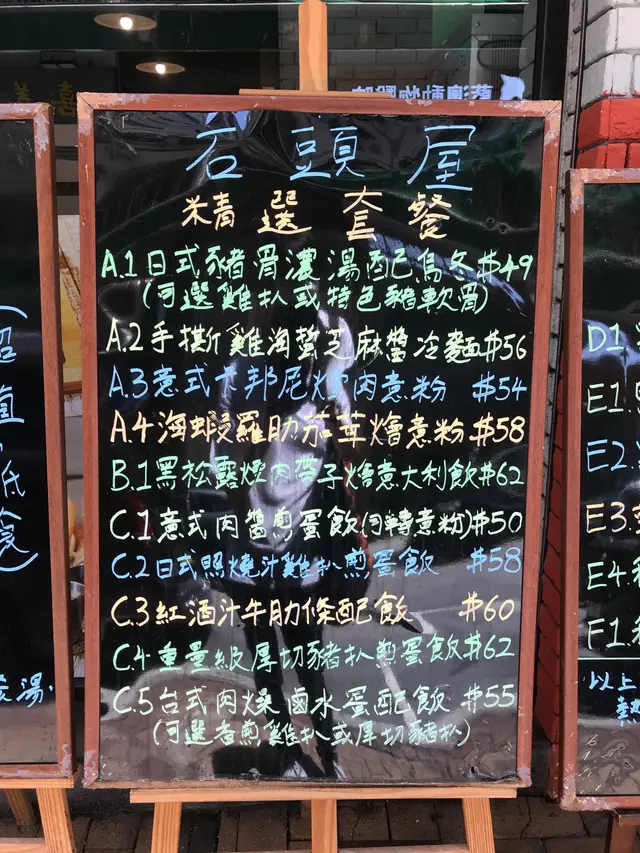 石頭屋
精選套餐
A.1日式豬骨濃湯配烏冬$49
(可選雞扒或特色豬軟骨)
A.2手撕雞海蜇芝麻醬冷麵$56
A.3意式卡邦尼煙肉意粉 $54
A.4海蝦羅肋茄茸燴意粉$58
B.1黑松露煙肉帶子燴意大利飯$62
C.1意式肉醬煎蛋飯(可轉意粉)$50
C.2日式照燒汁雞扒煎蛋飯 $58
C.3紅酒汁牛肋條配飯 $60
C.4重量級厚切豬扒煎蛋飯$62
C.5台式肉燥鹵水蛋配飯 $55
(可選香煎雞扒或厚切豬扒)
D1
E1
E2
E3
E4
F1
以上